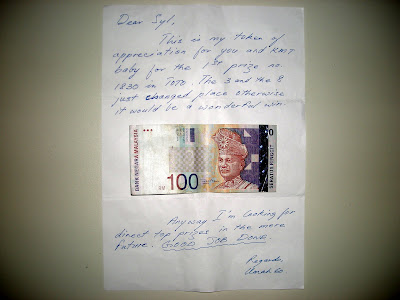 Dear Syl,
This is my token of
appreciation for you and
baby for the 1st prize no.
1830 in TOTO. The 3 and the 8
just changed place otherwise
it would be a wonderful win.
BANK NEGARA MALAYSIA
RM 100
SERATUS RINGGIT
Anyway I'm looking for
direct top prizes in the mere
future. GOOD JOB DONE.
Regards